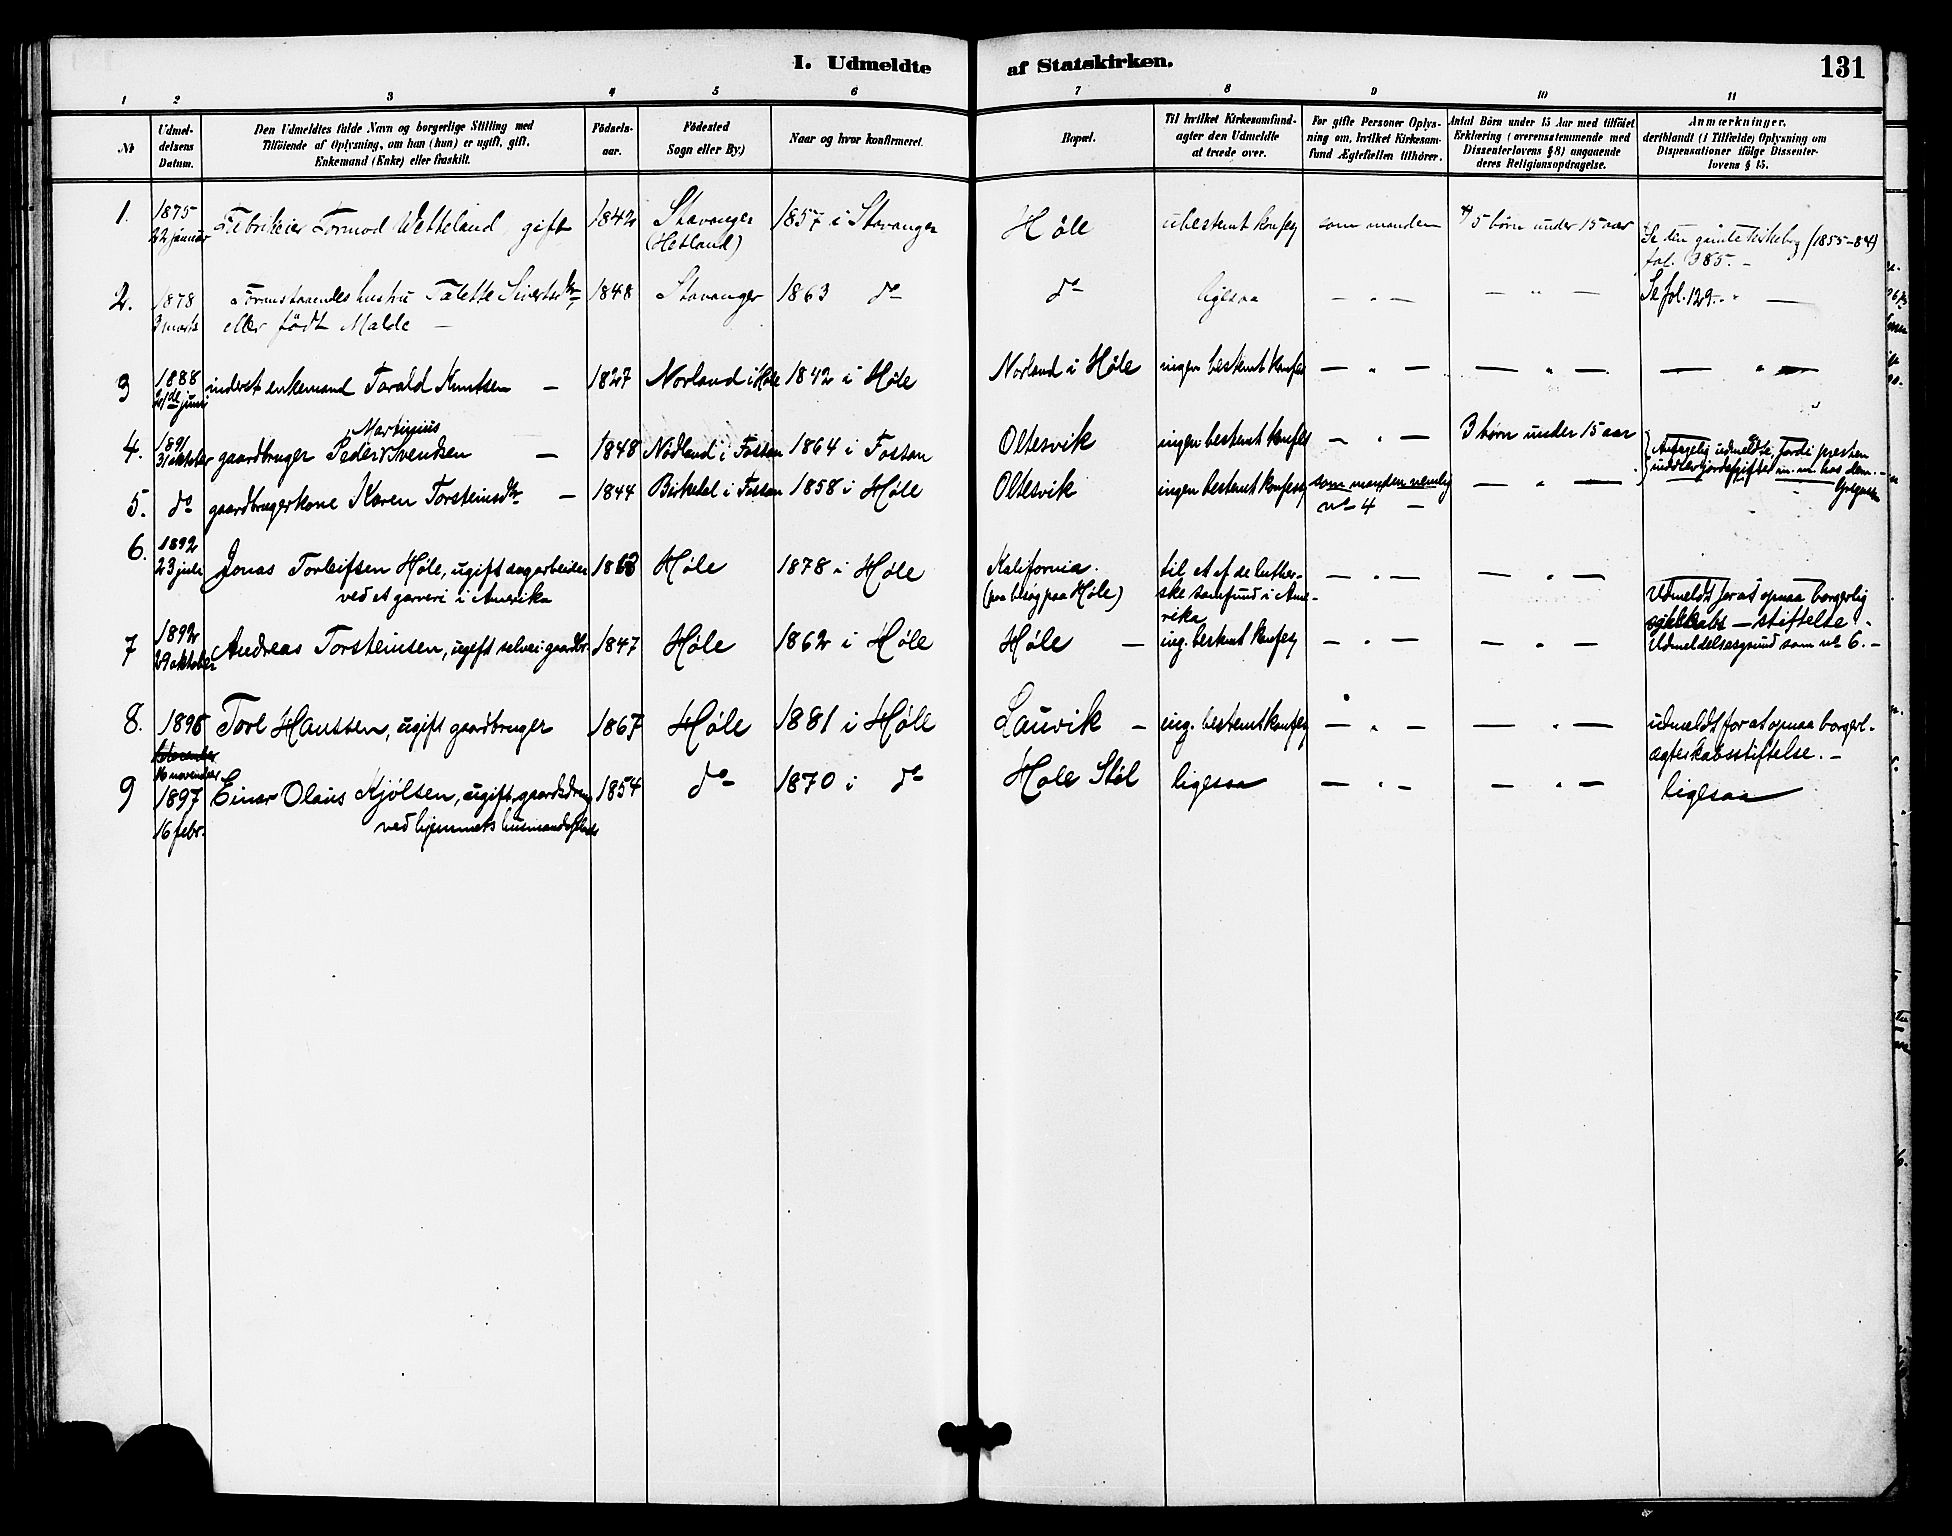 I. Udmeldte af Statskirken. 131
1 2 3 4 5 6 7 8 9 10 11
No
Udmel-
delsens
Datum.
Den Udmeldtes fulde Navn og borgerlige Stilling med
Tilföiende af Oplysning, om han (hun) er ugift, gift,
Enkemand (Enke) eller fraskilt.
Födsels-
aar.
Födested
Sogn eller By.)
Naar og hvor konfirmeret.
Bopæl.
Til hvilket Kirkesamfund
agter den Udmeldte
at træde over.
For gifte Personer Oplys-
ning om, hvilket Kirkesam-
fund Ægtefællen tilhörer.
Antal Börn under 15 Aar med tilföiet
Erklæring (overensstemmende med
Dissenterlovens § 8) angaaende
deres Religionsopdragelse.
Anmærkninger,
deriblandt (i Tilfælde) Oplysning om
Dispensationer ifölge Dissenter-
lovens § 15.
1. 1875 Fabrikeier Tormod Wetteland, gift 1842 Stavanger 1857 i Stavanger Høle ubestemt konfess som manden 5 børn under 15 aar
22 januar (Hetland) Se den gamle kirkebog (1855-84)
fol. 385. –
2. 1878 Foranstaaendes hustru Talette Sivertsdtr 1848 Stavanger 1863 do do ligesaa — " — — " — Se fol. 129. - " —
3 marts eller født Malde —
3 1888 inderst enkemand Torald Knutsen — 1827 Norland i Høle 1842 i Høle Norland i Høle ingen bestemt konfes — " — — " — — " —
21de juni
Martinius
4. 1891 gaardbruger Peder Svendsen — 1848 Nødland i Fossan 1864 i Fossan Oltesvik ingen bestemt konfes — " — 3 børn under 15 aar
31 oktober udmeldte, fordi presten
m.m. hos dem. –
5. do gaardbrugerkone Karen Torsteinsdtr — 1844 Birkedal i Fossan 1858 i Høle Oltesvik ingen bestemt konfess som manden nemlig — " —
no 4 —
6. 1892
23 juli Jonas Torleifsen Høle, ugift 1863 Høle 1878 i Høle Kalifornia. til et af de luther- — " — — " —
ved et garveri i Amerika (paa besøg paa Høle) ske samfund i Ame-
rika
Udmeldt for at opnaa borgerlig
ægteskabs — stiftelse. -
7 1892 Andreas Torsteinsen, ugift selvei. gaardbr. 1847 Høle 1862 i Høle Høle — ing. bestemt konfess — " — — " — Udmeldelsesgrund som no 6. –
29 oktober
8. 1895 Tore Hanssen, ugift gaardbruger 1867 Høle 1881 i Høle Lauvik — ing. bestemt konfess — " — — " — udmeldt for at opnaa borgerl.
16 november ægteskabsstiftelse. –
9 1897 Einar Olaus Kjølsen, ugift, gaardsdreng 1854 do 1870 i do Høle Støl ligesaa — " — — " — ligesaa
16 febr. ved hjemmets husmandsplads